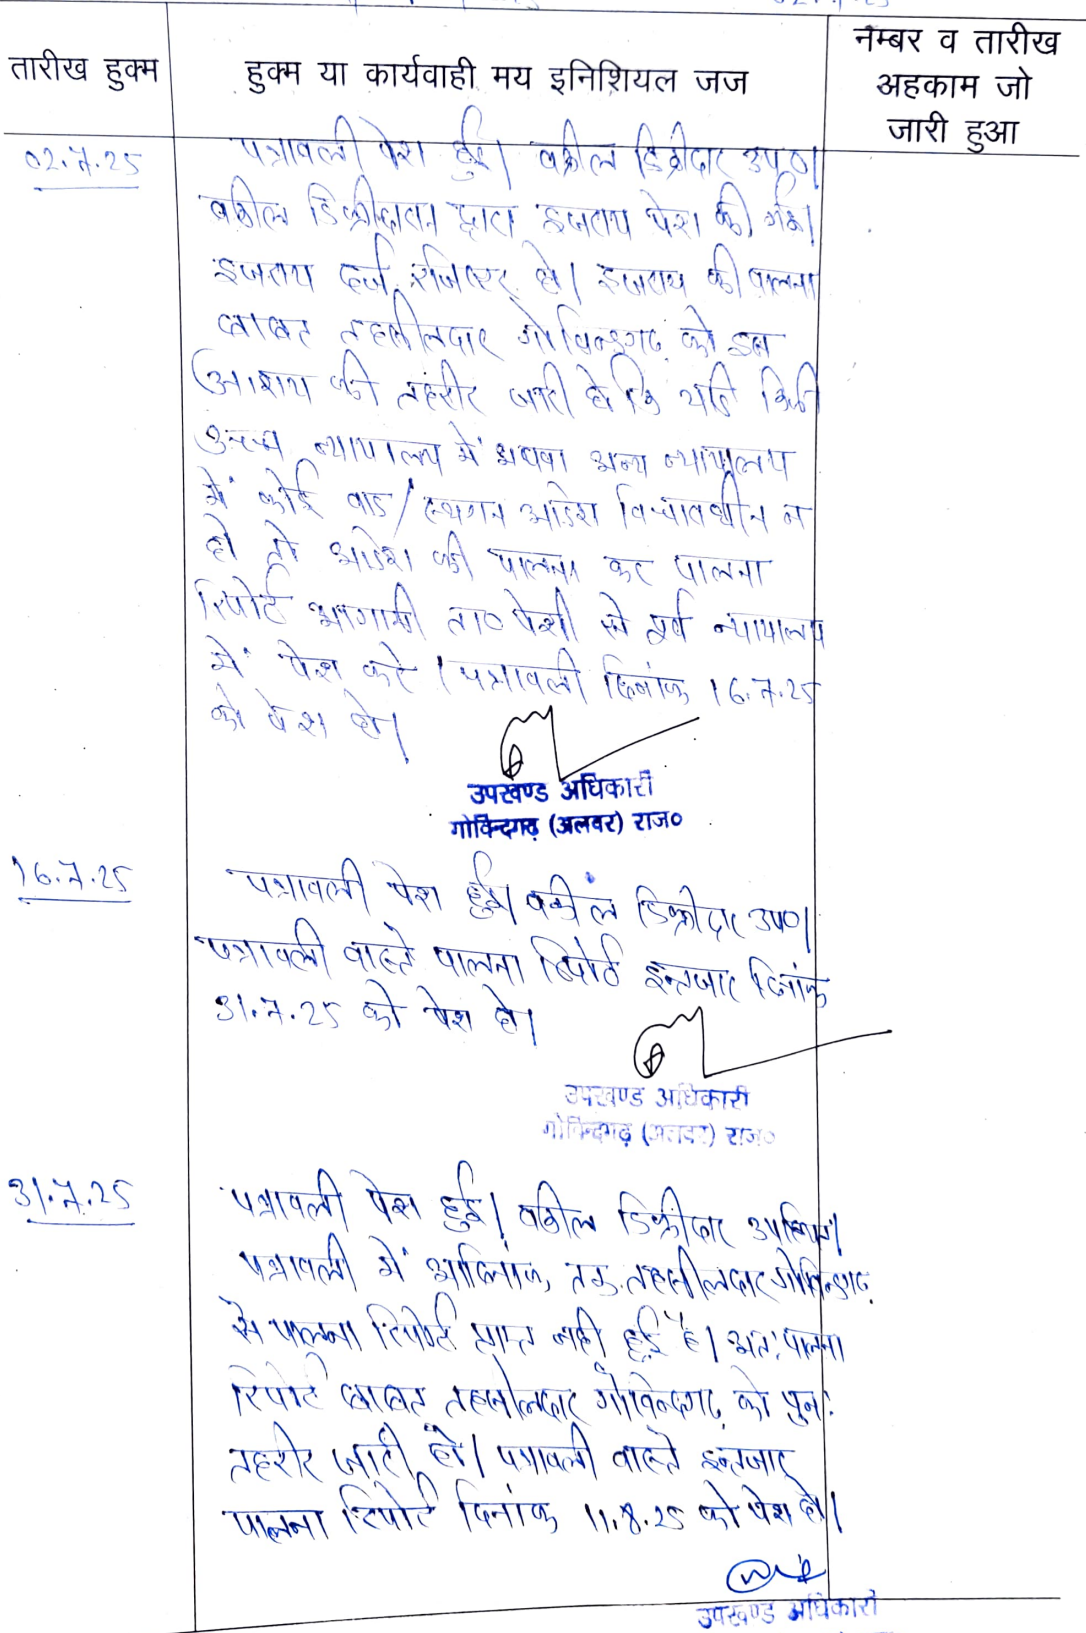 तारीख हुक्म
हुक्म या कार्यवाही मय इनिशियल जज
नम्बर व तारीख
अहकाम जो
जारी हुआ
02.7.25
पत्रावली पेश हुई। वकील डिक्रीदार उप०।
वकील डिक्रीदारान द्वारा इजराय पेश की गई।
इजराय दर्ज रजिस्टर हो। इजराय की पालना
बाबत तहसीलदार गोविन्दगढ़ को इस
आशय की तहरीर जारी हो कि यदि किसी
उच्च न्यायालय में अथवा अन्य न्यायालय
में कोई वाद/स्थगन आदेश विचाराधीन न
हो तो आदेश की पालना कर पालना
रिपोर्ट आगामी ता० पेशी से पूर्व न्यायालय
में पेश करे। पत्रावली दिनांक 16.7.25
को पेश हो।
उपखण्ड अधिकारी
गोविन्दगढ़ (अलवर) राज०
16.7.25
पत्रावली पेश हुई। वकील डिक्रीदार उप०।
पत्रावली वास्ते पालना रिपोर्ट इन्तजार दिनांक
31.7.25 को पेश हो।
उपखण्ड अधिकारी
गोविन्दगढ़ (अलवर) राज०
31.7.25
पत्रावली पेश हुई। वकील डिक्रीदार उपस्थित।
पत्रावली में आदिनांक तक तहसीलदार गोविन्दगढ़
से पालना रिपोर्ट प्राप्त नही हुई है। अतः पालना
रिपोर्ट बाबत तहसीलदार गोविन्दगढ़ को पुनः
तहरीर जारी हो। पत्रावली वास्ते इन्तजार
पालना रिपोर्ट दिनांक 11.8.25 को पेश हो।
उपखण्ड अधिकारी